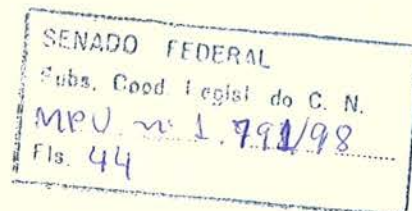 SENADO FEDERAL
Subs. Cood. Legisl do C. N.
MPV nº 1.791/98
Fls. 44